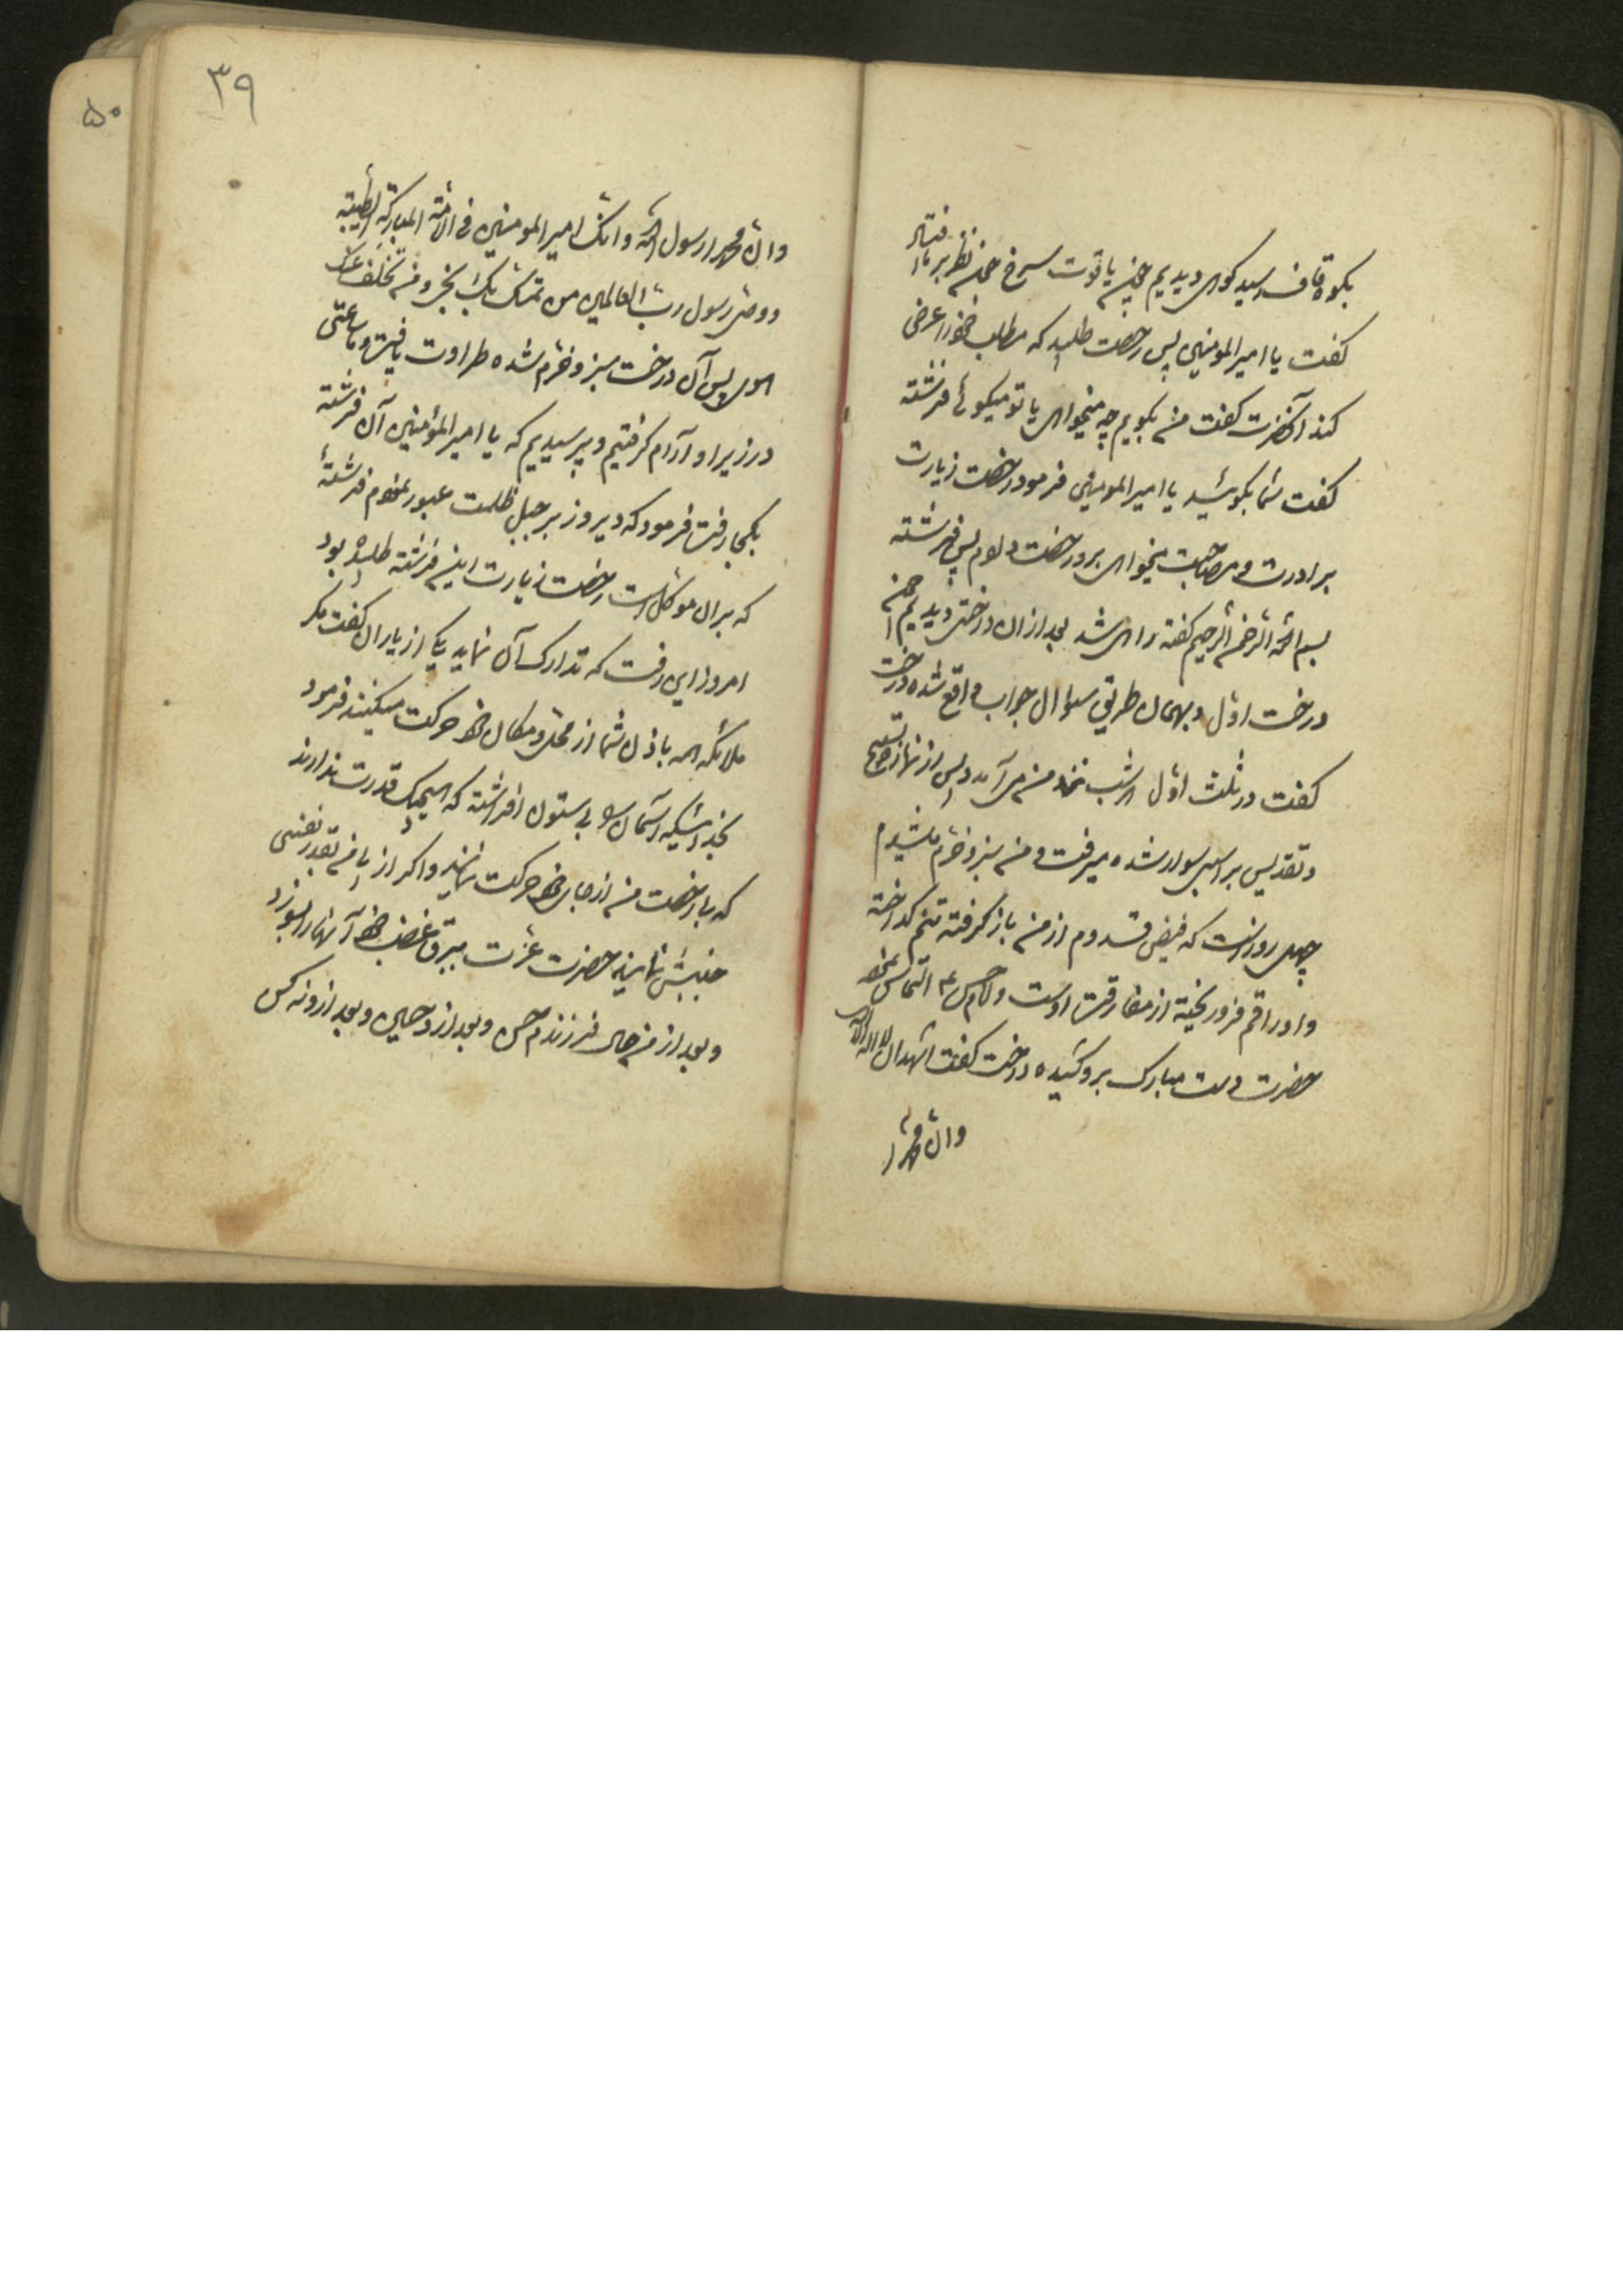 بکوه قاف رسید کوهی دیدیم چون یاقوت سرخ نظر بر ما افتاد
کفت یا امیرالمومنین پس رخصت طلبید که مطلب خود را عرض
کند آنحضرت کفت من بکویم چه میخواهی یا تو میکوئی فرشته
کفت شما بکوئید یا امیرالمومنین فرمود رخصت زیارت
برادرت و مصاحبت میخواهی برو رخصت دادم پس فرشته
بسم الله الرحمن الرحیم کفته راهی شد بعد از آن درختی دیدیم
درخت اول و بهمان طریق سوال جواب واقع شده درخت
کفت در ثلث اول هر شب نزد من می آمد و پس از نماز و تسبیح
و تقدیس بر اسبی سوار شده میرفت و من سبز و خرم میشدم
چهل روز است که فیض قدوم از من باز کرفته تنم کداخته
و اوراقم فرو ریخته از مفارقت اوست و امام حسن ع التماس نمود
حضرت دست مبارک برو کشیده درخت کفت اشهد ان لا اله الا الله
وان محمدا
۳۹
وان محمدا رسول الله وانک امیرالمومنین فی الامة المبارکة الطیبة
ووصی رسول رب العالمین من تمسک بک نجی ومن تخلف عنک
هوی پس آن درخت سبز و خرم شده طراوت یافت و ساعتی
در زیر او آرام کرفتیم و پرسیدیم که یا امیرالمؤمنین آن فرشته
بکجا رفت فرمود که دیروز بر جبل ظلمت عبور نمودم فرشتهٔ
که بران موکل است رخصت زیارت این فرشته طلبیده بود
امروز این رفت که تدارک آن نماید یکی از یاران کفت مکر
ملائکه همه باذن شما از محل و مکان خود حرکت میکنند فرمود
بخدائیکه آسمان را بی ستون افراشته که هیچیک قدرت ندارند
که بی رخصت من از جای خود حرکت نمایند و اکر از یا من بقدر نفسی
جنبش نمایند حضرت عزت ببرق غضب خود آنها را بسوزد
و بعد از من حال فرزندم حسن و بعد از و حسین و بعد از و نه کس
۵۰